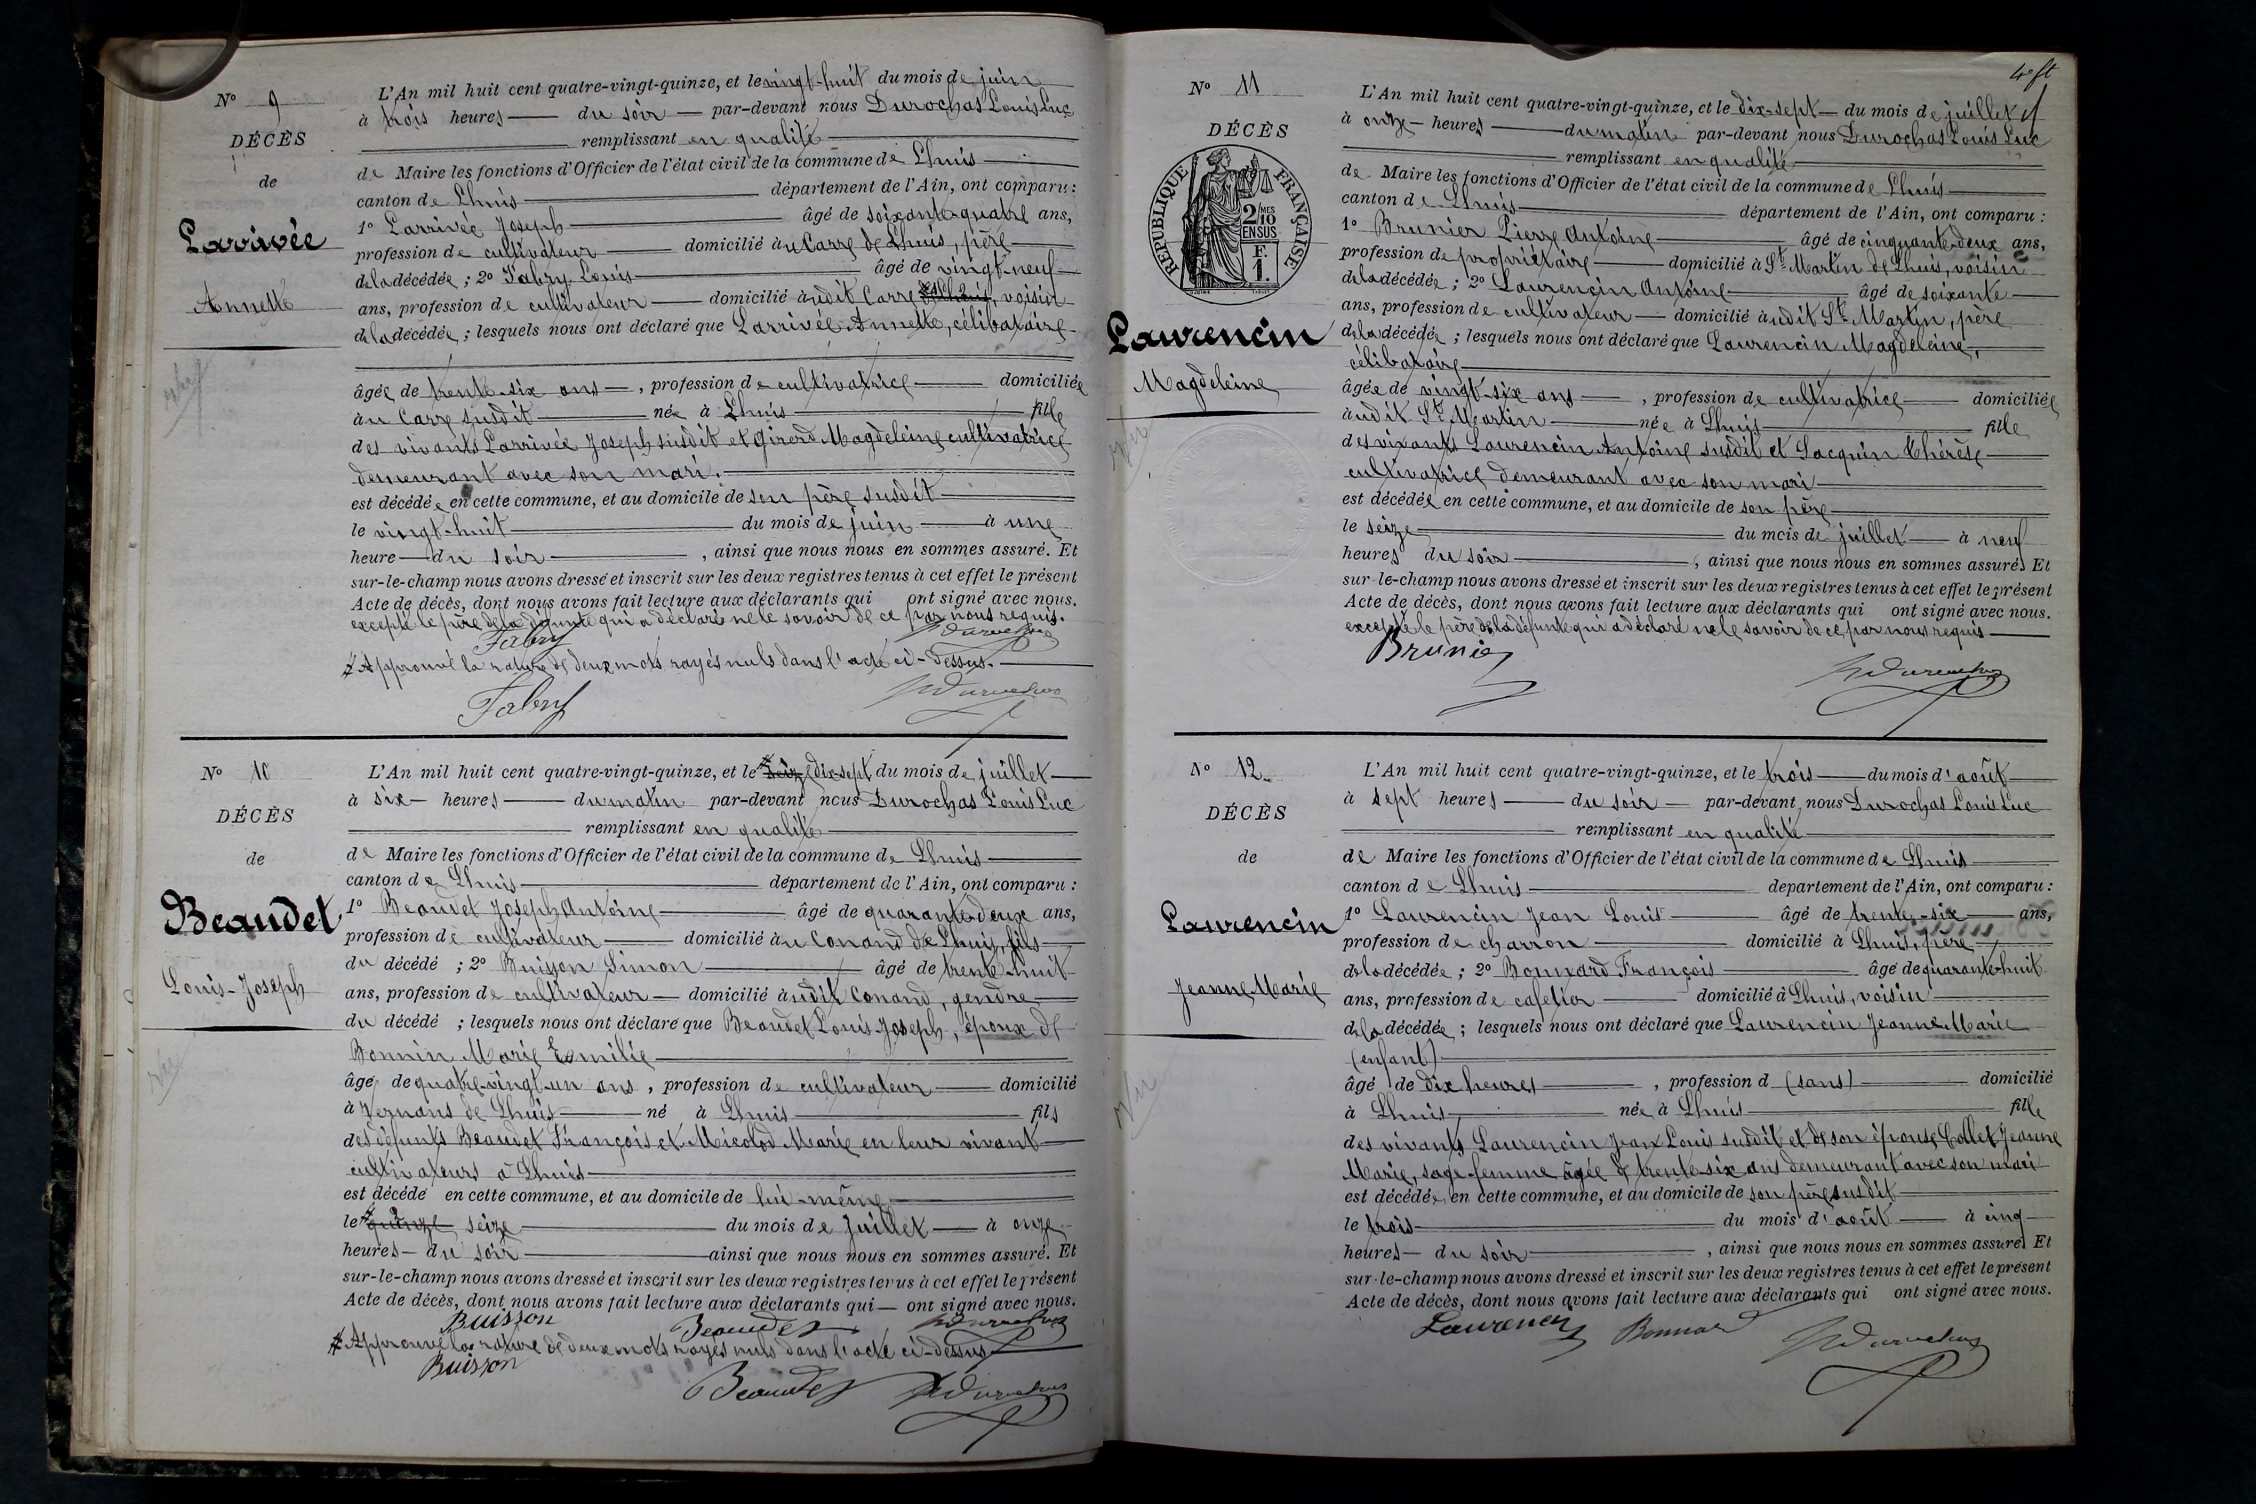 N° 9
DÉCÈS
de
Larrivée
Annette
L'An mil huit cent quatre-vingt-quinze, et le vingt-huit du mois de juin
à trois heures du soir par-devant nous Durochas Louis Luc
remplissant en qualité
de Maire les fonctions d'Officier de l'état civil de la commune de Lhuis
canton de Lhuis département de l'Ain, ont comparu :
1° Larrivée Joseph âgé de soixante-quatre ans,
profession de cultivateur domicilié au Carre de Lhuis, père
de la décédée ; 2° Fabry Louis âgé de vingt-neuf
ans, profession de cultivateur domicilié audit Carre de Lhuis, voisin
de la décédée ; lesquels nous ont déclaré que Larrivée Annette, célibataire
âgée de trente-six ans, profession de cultivatrice domiciliée
au Carre susdit née à Lhuis fille
des vivants Larrivée Joseph susdit et Girerd Magdeleine cultivatrice
demeurant avec son mari.
est décédée en cette commune, et au domicile de son père susdit
le vingt-huit du mois de juin à une
heure du soir, ainsi que nous nous en sommes assuré. Et
sur-le-champ nous avons dressé et inscrit sur les deux registres tenus à cet effet le présent
Acte de décès, dont nous avons fait lecture aux déclarants qui ont signé avec nous.
excepté le père de la défunte qui a déclaré ne le savoir de ce par nous requis.
Fabry Durochas
# Approuvé la rature de deux mots rayés nuls dans l'acte ci-dessus.
Fabry Durochas
N° 10
DÉCÈS
de
Beaudet
Louis-Joseph
L'An mil huit cent quatre-vingt-quinze, et le # seize dix-sept du mois de juillet
à six heures du matin par-devant nous Durochas Louis Luc
remplissant en qualité
de Maire les fonctions d'Officier de l'état civil de la commune de Lhuis
canton de Lhuis département de l'Ain, ont comparu :
1° Beaudet Joseph Antoine âgé de quarante-deux ans,
profession de cultivateur domicilié au Conand de Lhuis, fils
du décédé ; 2° Buisson Simon âgé de trente-huit
ans, profession de cultivateur domicilié audit Conand, gendre
du décédé ; lesquels nous ont déclaré que Beaudet Louis-Joseph, époux de
Bonnin Marie Emilie
âgé de quatre-vingt-un ans, profession de cultivateur domicilié
à Vernans de Lhuis né à Lhuis fils
des défunts Beaudet François et Micolod Marie en leur vivant
cultivateurs à Lhuis
est décédé en cette commune, et au domicile de lui-même
le # quinze seize du mois de Juillet à onze
heures du soir ainsi que nous nous en sommes assuré. Et
sur-le-champ nous avons dressé et inscrit sur les deux registres tenus à cet effet le présent
Acte de décès, dont nous avons fait lecture aux déclarants qui ont signé avec nous.
Buisson Beaudet Durochas
# Approuvé la rature de deux mots rayés nuls dans l'acte ci-dessus
Buisson Beaudet Durochas
N° 11
DÉCÈS
RÉPUBLIQUE FRANÇAISE
2/10 MES
EN SUS
F.
1.
Laurencin
Magdeleine
L'An mil huit cent quatre-vingt-quinze, et le dix-sept du mois de juillet
à onze heures du matin par-devant nous Durochas Louis Luc
remplissant en qualité
de Maire les fonctions d'Officier de l'état civil de la commune de Lhuis
canton de Lhuis département de l'Ain, ont comparu :
1° Brunier Pierre Antoine âgé de cinquante-deux ans,
profession de propriétaire domicilié à St Martin de Lhuis, voisin
de la décédée ; 2° Laurencin Antoine âgé de soixante
ans, profession de cultivateur domicilié audit St Martin, père
de la décédée ; lesquels nous ont déclaré que Laurencin Magdeleine,
célibataire
âgée de vingt-six ans, profession de cultivatrice domiciliée
audit St Martin née à Lhuis fille
des vivants Laurencin Antoine susdit et Jacquin Thérèse
cultivatrice demeurant avec son mari
est décédée en cette commune, et au domicile de son père
le seize du mois de juillet à neuf
heures du soir, ainsi que nous nous en sommes assuré. Et
sur-le-champ nous avons dressé et inscrit sur les deux registres tenus à cet effet le présent
Acte de décès, dont nous avons fait lecture aux déclarants qui ont signé avec nous.
excepté le père de la défunte qui a déclaré ne le savoir de ce par nous requis
Brunier Durochas
N° 12
DÉCÈS
de
Laurencin
Jeanne Marie
L'An mil huit cent quatre-vingt-quinze, et le trois du mois d'août
à sept heures du soir par-devant nous Durochas Louis Luc
remplissant en qualité
de Maire les fonctions d'Officier de l'état civil de la commune de Lhuis
canton de Lhuis département de l'Ain, ont comparu :
1° Laurencin Jean Louis âgé de trente-six ans,
profession de charron domicilié à Lhuis, père
de la décédée ; 2° Bonnard François âgé de quarante-huit
ans, profession de cafetier domicilié à Lhuis, voisin
de la décédée ; lesquels nous ont déclaré que Laurencin Jeanne Marie
(enfant)
âgé de dix heures, profession d (sans) domicilié
à Lhuis née à Lhuis fille
des vivants Laurencin Jean Louis susdit et de son épouse Collet Jeanne
Marie, sage-femme âgée de trente-six ans demeurant avec son mari
est décédée en cette commune, et au domicile de son père susdit
le trois du mois d'août à cinq
heures du soir, ainsi que nous nous en sommes assuré. Et
sur-le-champ nous avons dressé et inscrit sur les deux registres tenus à cet effet le présent
Acte de décès, dont nous avons fait lecture aux déclarants qui ont signé avec nous.
Laurencin Bonnard Durochas